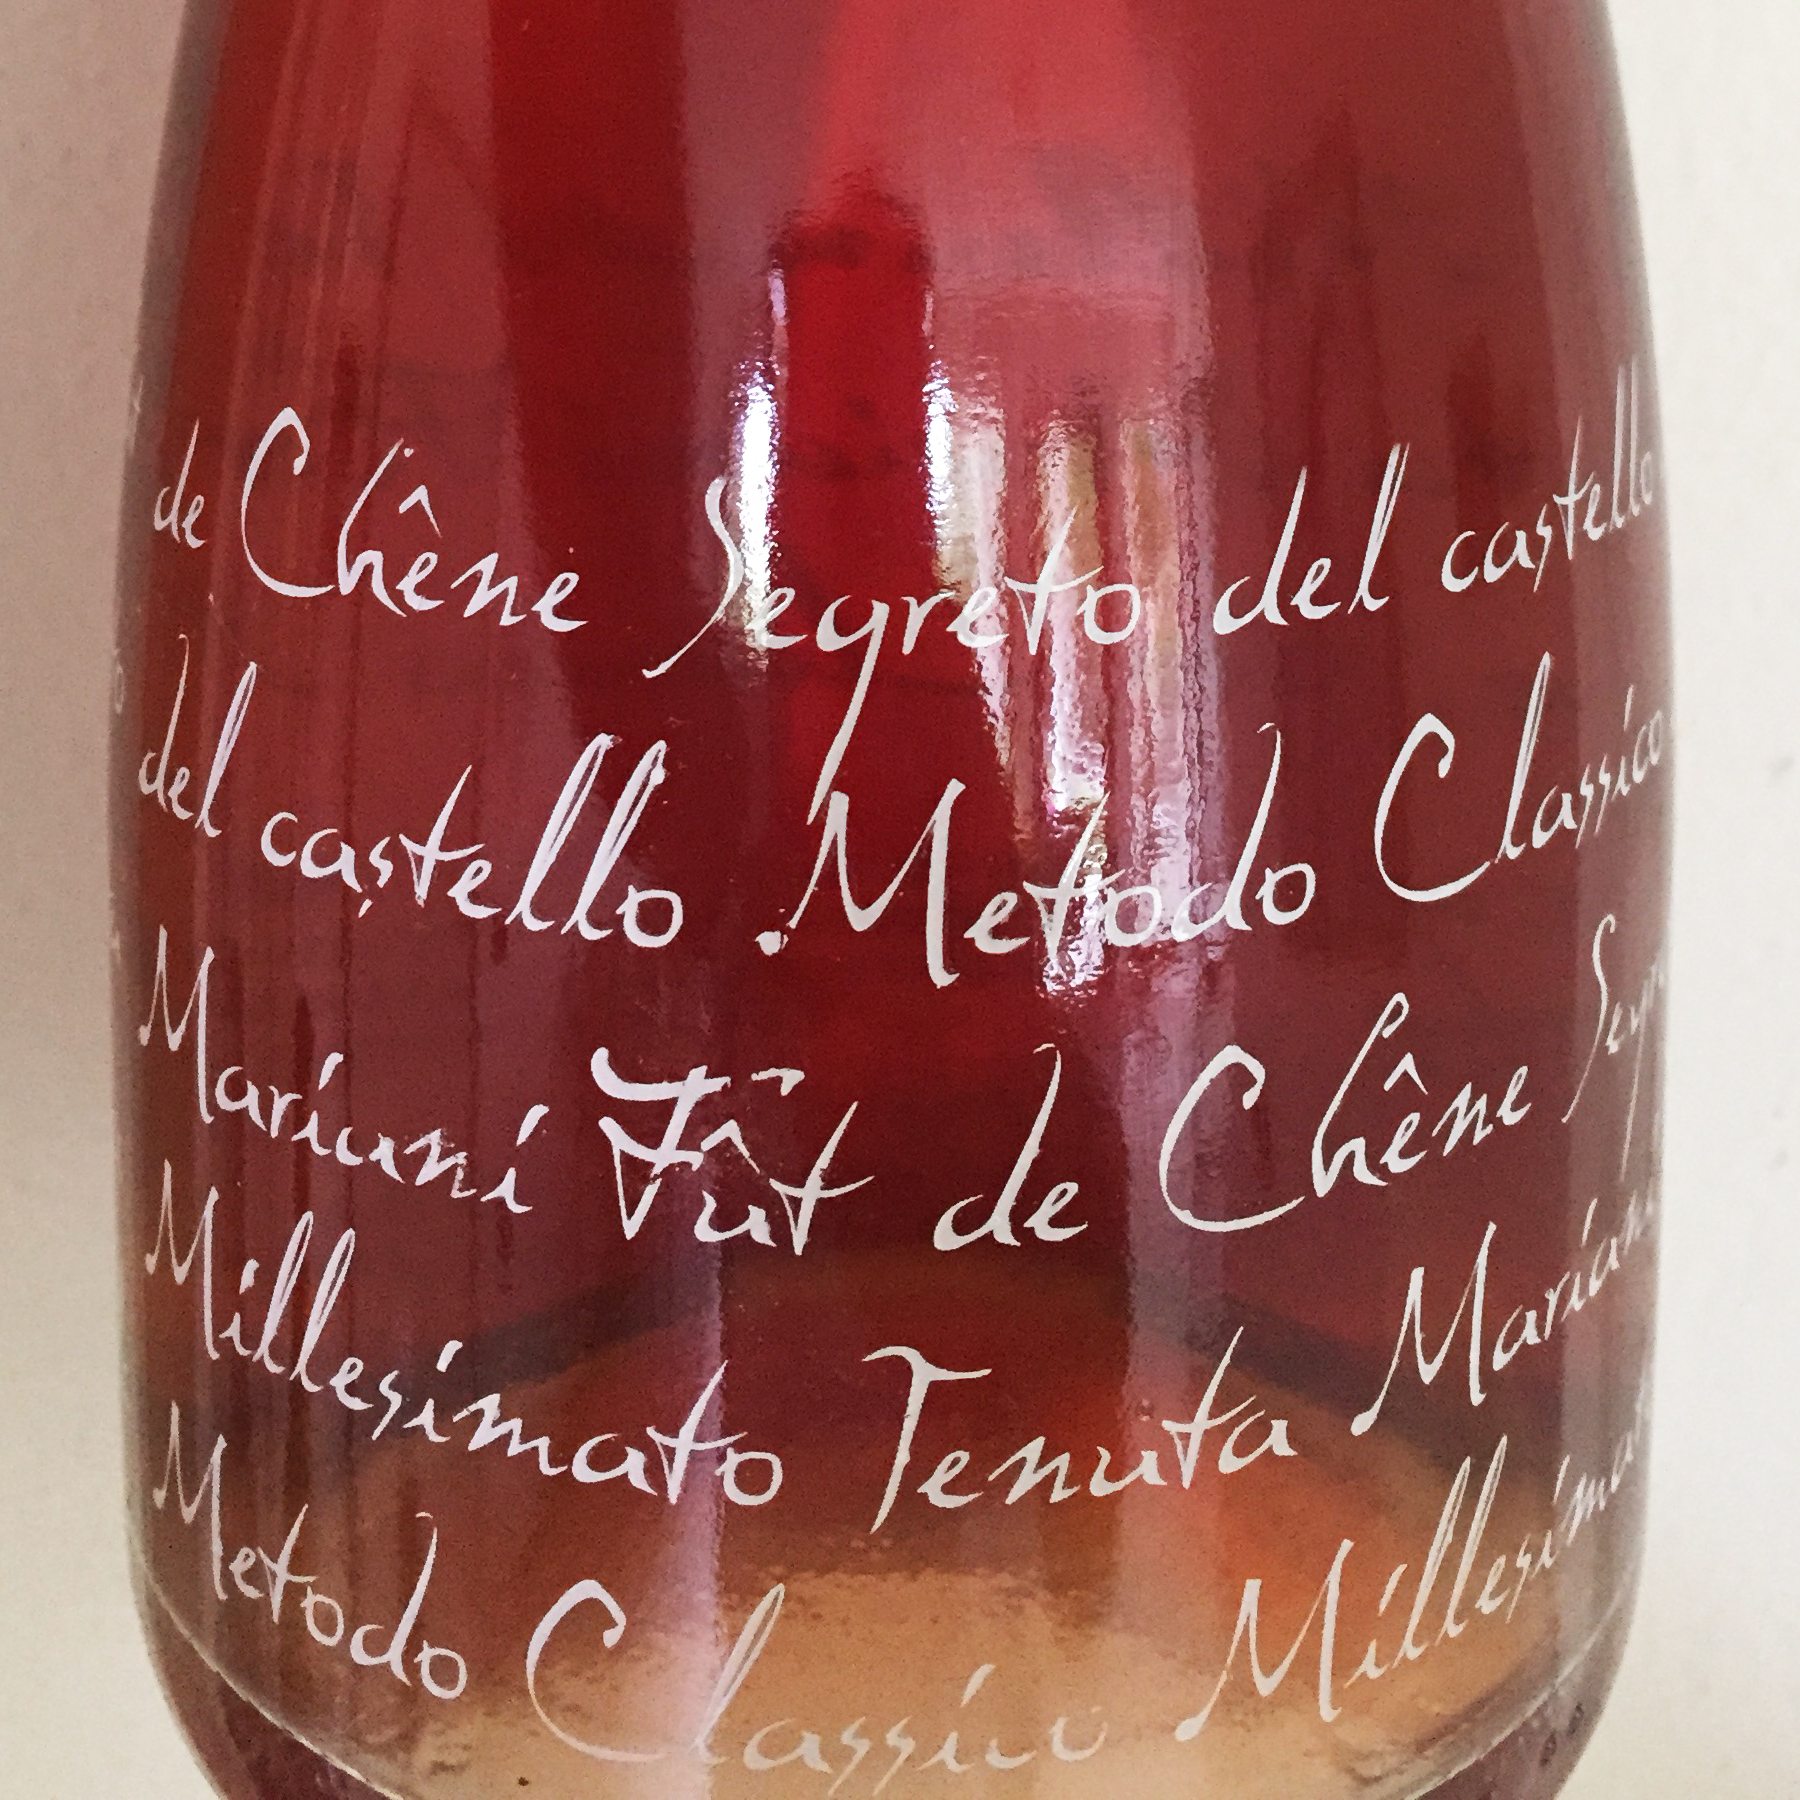 de Chêne Segreto del castello
del castello Metodo Classico
Mariani Fût de Chêne Segr
Millesimato Tenuta Mariani
Metodo Classico Millesima